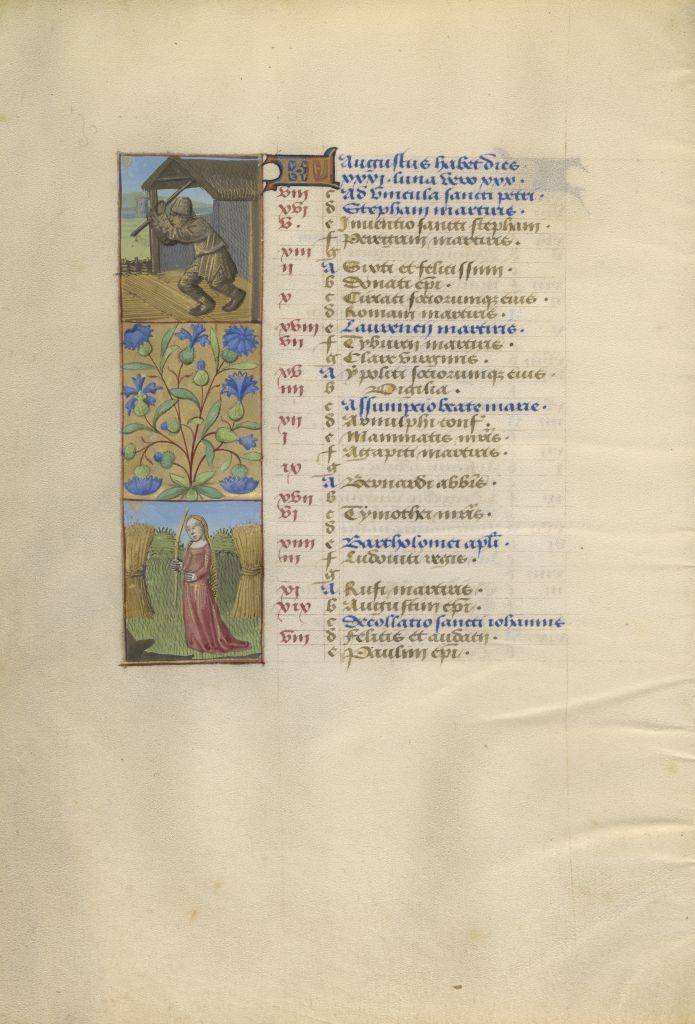 Augustus habet dies
xxxi · luna vero xxx ·
viii c Ad vincula sancti petri ·
xvi d Stephani martiris ·
v · e Inventio sancti stephani ·
f martiris ·
xiii g
ii A Sixti et felicissimi ·
b Donati epi ·
x c Ciriaci sociorumque eius ·
d Romani martiris ·
xviii e Laurencii martiris ·
vii f Tyburcii martiris ·
g Clare virginis ·
xv A Ypoliti sociorumque eius ·
iiii b Vigilia ·
c Assumptio beate marie ·
xii d Arnulphi conf ·
i e Mammatis mris ·
f Agapiti martiris ·
ix g
A Bernardi abbis ·
xvii b
vi c Tymothei mris ·
d
xiiii e Bartholomei apli ·
iii f Ludovici regis ·
g
xi A Rufi martiris ·
xix b Augustini epi ·
c Decollatio sancti iohannis
viii d Felicis et audacti ·
e Paulini epi ·